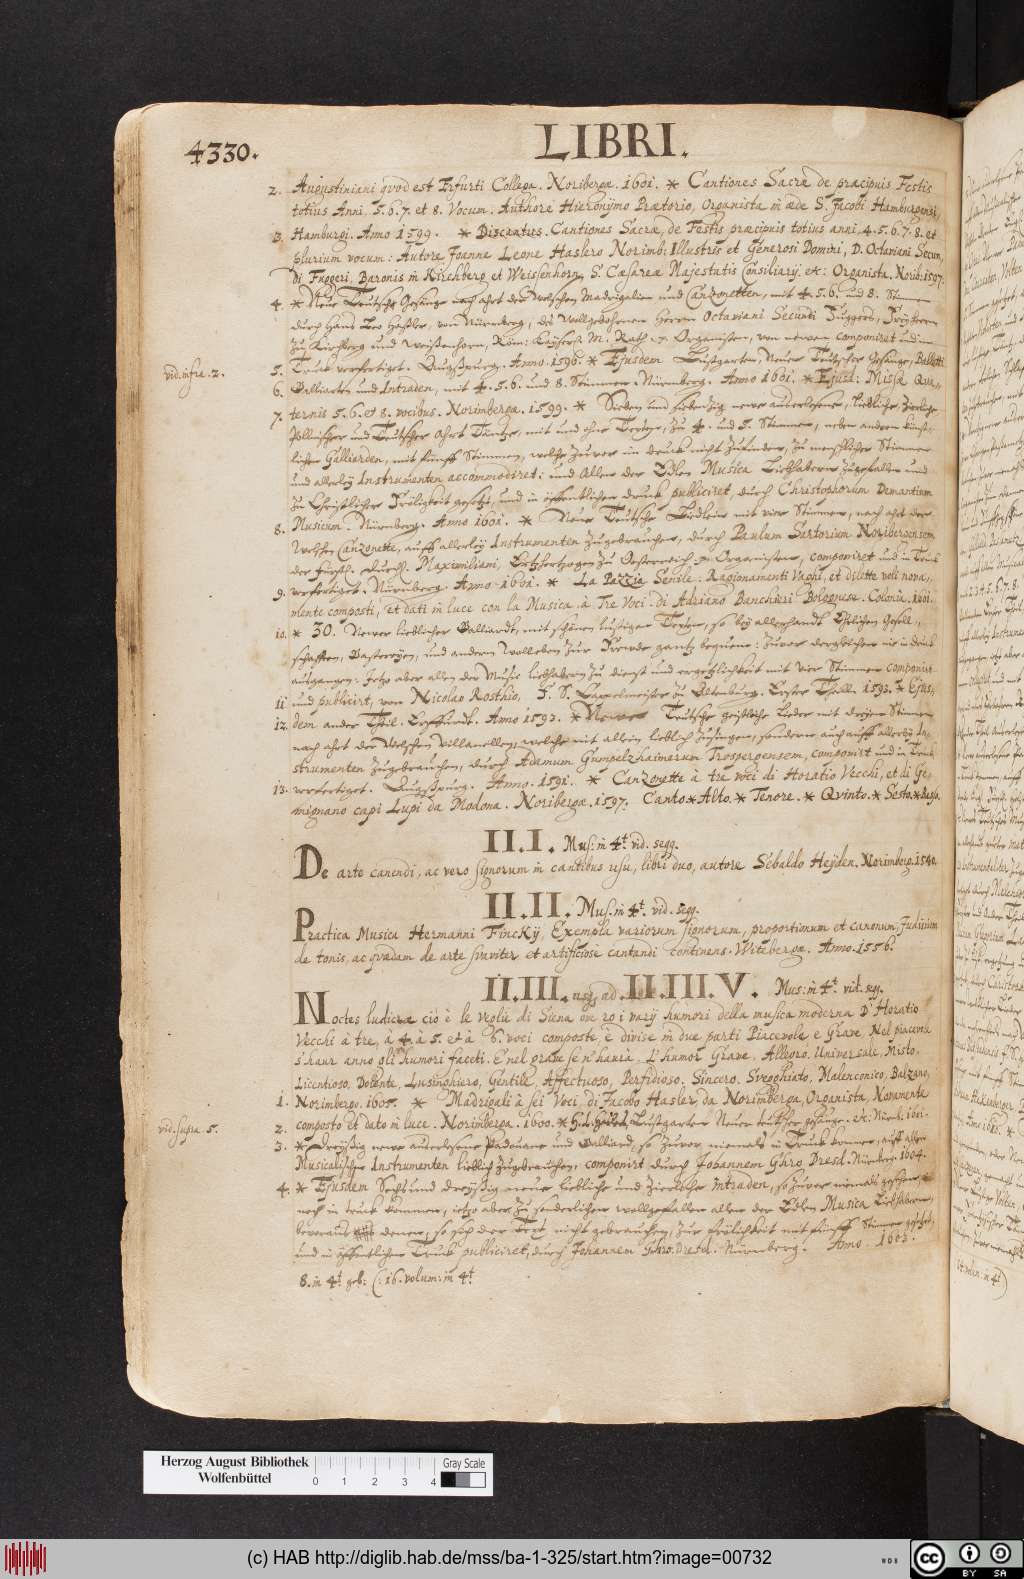 4330.
LIBRI.
2. Augustiniani qvod est Erfurti Collega. Noribergæ. 1601. * Cantiones Sacræ de præcipuis Festis
totius Anni. 5.6.7. et 8. Vocum. Authore Hieronÿmo Prætorio, Organista in æde S. Jacobi Hamburgensi,
3. Hamburgi. Anno 1599. * Discantus. Cantiones Sacræ, de Festis præcipuis totius anni. 4.5.6.7.8. et
plurium vocum: Autore Joanne Leone Haslero Norimb: Illustris et Generosi Domini, D. Octaviani Secun,
di Fuggeri, Baronis in Kirchberg et Weissenhorn, S. Cæsareæ Majestatis Consiliarij, etc: Organista. Norib: 1597.
4. * Neue Teutsche Gesänge nach ahrt der Welschen Madrigalien und Canzonetten, mit 4.5.6. und 8. Stimmen
durch Hans Leo Haßler, von Nürnberg, des Wollgebohrnen Herrn Octaviani Secundi Fuggers, Freyherrn
zu Kirchberg und Weissenhorn, Röm: Kayserl. M. Rath Organisten, von newen componirt und in
5. Truck verfertiget. Augspurg. Anno. 1596. * Ejusdem Lustgarten, Neuer Teutscher Gesänge, Balletti
vid. infra. 2.
6. Galliarden und Intraden, mit 4.5.6. und 8. Stimmen. Nürnberg. Anno 1601. * Ejusd: Missæ Qua,
7. ternis 5.6. et 8. vocibus. Norimbergæ. 1599. * Sieben und siebenzig newe außerlesene, liebliche, Zierliche
Pollnischer und Teutscher Ahrt Täntze, mit und ohne Texten, zu 4. und 5. Stimmen, neben andern künst,
lichen Galliarden, mit fünff Stimmen, welche zuvor im druck nicht zufinden, zu menschlicher Stimme
und allerley Instrumenten accommodiret: und Allen der Edlen Musica Liebhabern zugefallen und
zu Christlicher Fröligkeit gesetzt, und in öffentlichen druck publiciret, durch Christophorum Demantium
8. Musicum. Nürnberg. Anno 1601. * Neue Teutsche Liedlein mit vier Stimmen, nach ahrt der
Welschen Canzonette, auff allerley Instrumenten zugebrauchen, durch Paulum Sartorium Noribergensem
der Fürstl. Durchl. Maximiliani, Ertzhertzogen zu Oesterreich Organisten, componiret und in Truck
9. verfertiget. Nürnberg. Anno 1601. * La Pazzia Senile. Ragionamenti Vaghi, et dilette voli nova,,
mente composti, et dati in luce con la Musica à Tre Voci. di Adriano Banchieri Bolognese. Coloniæ. 1601.
10. * 30. Newer lieblicher Galliardt, mit schönen lustigen Texten, so bey allerhandt Ehrlichen Gesell,,
schafften, Gastereyen, und andern Wolleben zur Freude gantz bequeme: Zuvor dergleichen nie in druck
ausgangen: Jetzo aber allen der Music liebhabern zu dienst und ergetzlichkeit mit vier Stimmen componirt
11 und publicirt, von Nicolao Rosthio, F. S. Capelmeister zu Altenburg. Erster Theill. 1593. * Ejus,
12. dem ander Theil. Erffurdt. Anno 1593. * Newe Teutsche geistliche Lieder mit dreyen Stimmen
nach ahrt der Welschen Villanellen, welche nit allein lieblich zusingen, sondern auch auff allerley In,
strumenten zugebrauchen, durch Adamum Gumpelzhaimerum Trospergensem, componirt und in Truck
13. verfertiget. Augspurg. Anno. 1591. * Canzonette à tre voci di Horatio Vecchi, et di Ge,
mignano capi Lupi da Modona. Noribergæ. 1597. Canto * Alto. * Tenore. * Qvinto. * Sesto. * Basso.
II.I. Mus: in 4t. vid. seqq.
De arte canendi, ac vero signorum in cantibus usu, libri duo, autore Sebaldo Heyden. Norimberg. 1540.
II.II. Mus. in 4t. vid. seqq.
Practica Musica Hermanni Finckÿ, Exempla variorum signorum, proportionum et canonum, Judicium
de tonis, ac qvædam de arte svaviter et artificiose cantandi continens. Witebergæ. Anno. 1556.
II.III. usq; ad II.III.V. Mus: in 4t. vid. seqq.
Noctes ludicræ cio è le veglie di Siena ove ro i varÿ humori della musica moderna D' Horatio
Vecchi à tre, à 4. à 5. et à 6. voci composte, è divise in due parti Piacevole e Grave, Nel piacevole
s'haur anno gli humori faceti. E nel grave se n'hauria. L' humor Grave. Allegro. Universale. Misto.
Licentioso. Dolente, Lusinghiero, Gentile, Affectuoso, Perfidioso. Sincero. Svegghiato. Malenconico, Balzano,
1. Norimbergo. 1605. * Madrigali à sei Voci, di Jacobo Hasler, da Norimberga, Organista, Novamente
vid. supra. 5.
2. composto et dato in luce. Norimberga. 1600. * H. L. Haßl. Lustgarten Neuer teutscher gesänge. etc. Nürnb. 1601.
3. * Dreyßig newe außerlesene Padoane und Galliard, so zuvor niemals in Truck kommen, auff allen
Musicalischen Instrumenten lieblich zugebrauchen, componirt durch Johannem Ghro. Dresd. Nürnberg. 1604.
4. * Ejusdem Sechs und dreyßig neue liebliche und Zierliche Intraden, so zuvor niemals gesehen,
noch in truck kommen, ietzo aber zu sonderlichem wollgefallen allen der Edlen Musica Liebhabern,
bevoraus denen, so sich der Text nicht gebrauchen, zur frölichkeit mit fünff Stimmen gesetzt,
und in öffentlichen Truck publiciret, durch Johannem Ghro. Dresd. Nürnberg. Anno. 1603.
8. in 4t. geb: (: 16. volum: in 4t.
Herzog August Bibliothek
Wolfenbüttel
0 1 2 3 4
Gray Scale
(c) HAB http://diglib.hab.de/mss/ba-1-325/start.htm?image=00732
WDB
cc BY SA